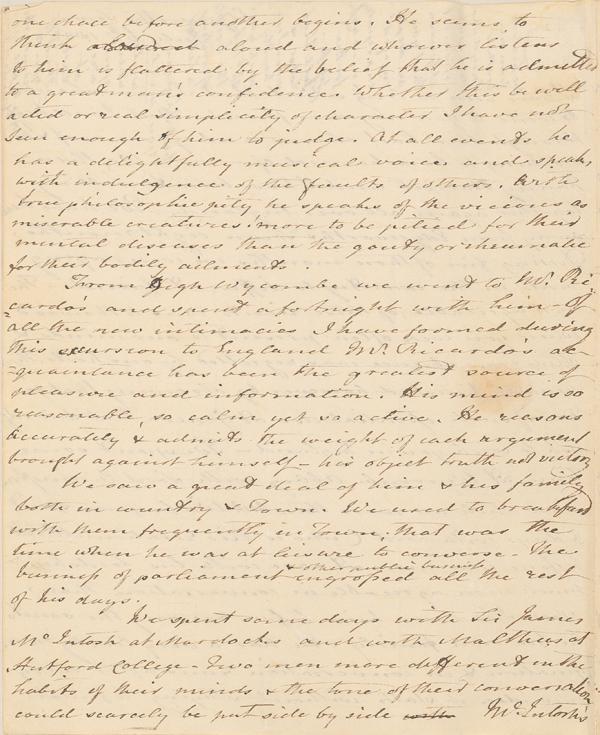 one chace before another begins. He seems to
think aloud and whoever listens
to him is flattered by the belief that he is admitted
to a great man's confidence. Whether this be well
acted or real simplicity of character I have not
seen enough of him to judge. At all events he
has a delightfully musical voice and speaks
with indulgence of the faults of others. With
true philosophic pity he speaks of the vicious as
miserable creatures! more to be pitied for their
mental diseases than the gouty or rheumatic
for their bodily ailments.
From High Wycombe we went to Mr. Ri-
=cardo's and spent a fortnight with him - Of
all the new intimacies I have formed during
this excursion to England Mr. Ricardo's ac-
=quaintance has been the greatest source of
pleasure and information. His mind is so
reasonable, so calm yet so active. He reasons
accurately & admits the weight of each argument
brought against himself - his object truth not victory
We saw a great deal of him & his family
both in country & Town. We used to breakfast
with them frequently in Town; that was the
time when he was at leisure to converse - The
& other public business
business of parliament engrossed all the rest
of his days.
We spent some days with Sir James
McIntosh at Mardocks and with Malthus at
Hertford College - Two men more different in the
habits of their minds & the tone of their conversation
could scarcely be put side by side with McIntosh's